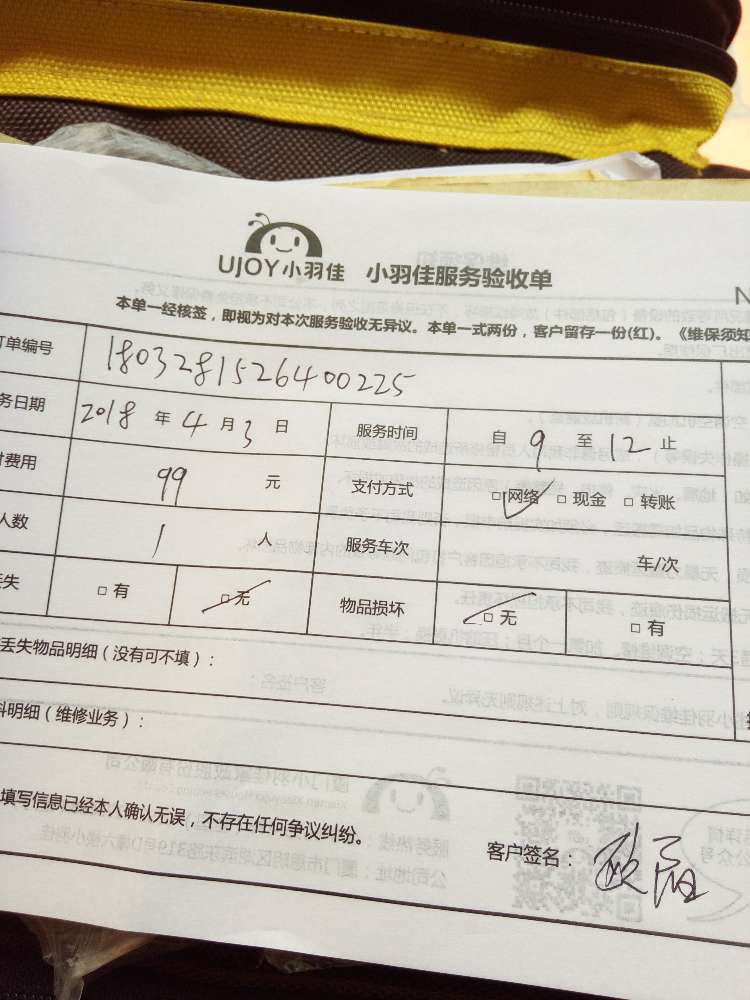 UJOY小羽佳 小羽佳服务验收单
N
本单一经核签，即视为对本次服务验收无异议。本单一式两份，客户留存一份(红)。《维保须知
订单编号 1803281526400225
务日期 2018 年 4 月 3 日 服务时间 自 9 至 12 止
付费用 99 元 支付方式 □网络 □现金 □转账
人数 1 人 服务车次 车/次
丢失 □有 □无 物品损坏 □无 □有
丢失物品明细（没有可不填）：
料明细（维修业务）：
填写信息已经本人确认无误，不存在任何争议纠纷。
客户签名：